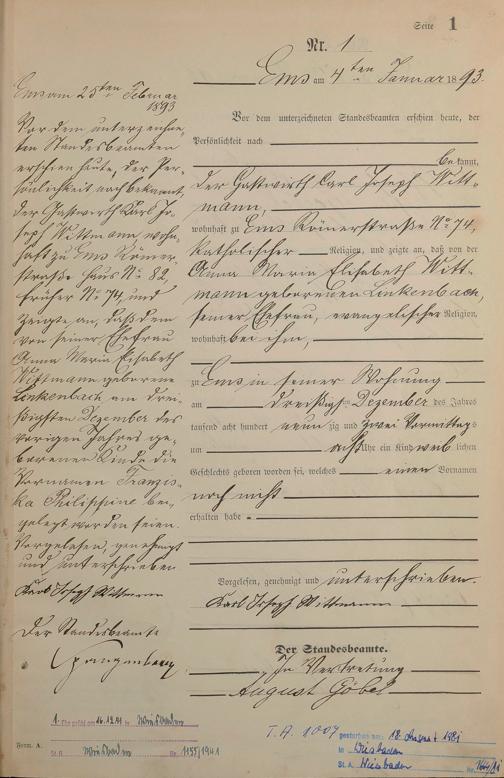 Seite 1
Nr. 1
Ems am 4ten Januar 1893.
Vor dem unterzeichneten Standesbeamten erschien heute, der
Persönlichkeit nach
bekannt,
der Gastwirth Carl Joseph Witt-
mann,
wohnhaft zu Ems Römerstraße No 74,
katholischer Religion, und zeigte an, daß von der
Anna Maria Elisabeth Witt-
mann geborenen Linkenbach,
seiner Ehefrau, evangelischer Religion,
wohnhaft bei ihm,
zu Ems in seiner Wohnung
am dreißigsten Dezember des Jahres
tausend acht hundert neun zig und zwei Vormittags
um acht Uhr ein Kind weib lichen
Geschlechts geboren worden sei, welches einen Vornamen
noch nicht
erhalten habe.
Vorgelesen, genehmigt und unterschrieben.
Karl Joseph Wittmann
Der Standesbeamte.
In Vertretung
August Göbel
Ems am 25ten Februar
1893
Vor dem unterzeichne-
ten Standesbeamten
erschien heute, der Per-
sönlichkeit nach bekannt,
der Gastwirth Karl Jo-
seph Wittmann wohn-
haft zu Ems Römer-
straße Haus No 82,
früher No 74, und
zeigte an, daß dem
von seiner Ehefrau
Anna Maria Elisabeth
Wittmann geborene
Linkenbach am drei-
ßigsten Dezember des
vorigen Jahres ge-
borenen Kinde die
Vornamen Franzis-
ka Philippine bei-
gelegt worden seien.
Vorgelesen, genehmigt
und unterschrieben
Karl Joseph Wittmann
Der Standesbeamte
Spangenberg
1. Ehe geschl. am 16.12.41 in Wiesbaden
St. A. Wiesbaden Nr. 1155/1941
Form. A.
T.A. 1007
gestorben am: 18. August 1981
in Wiesbaden
St. A. Wiesbaden Nr.